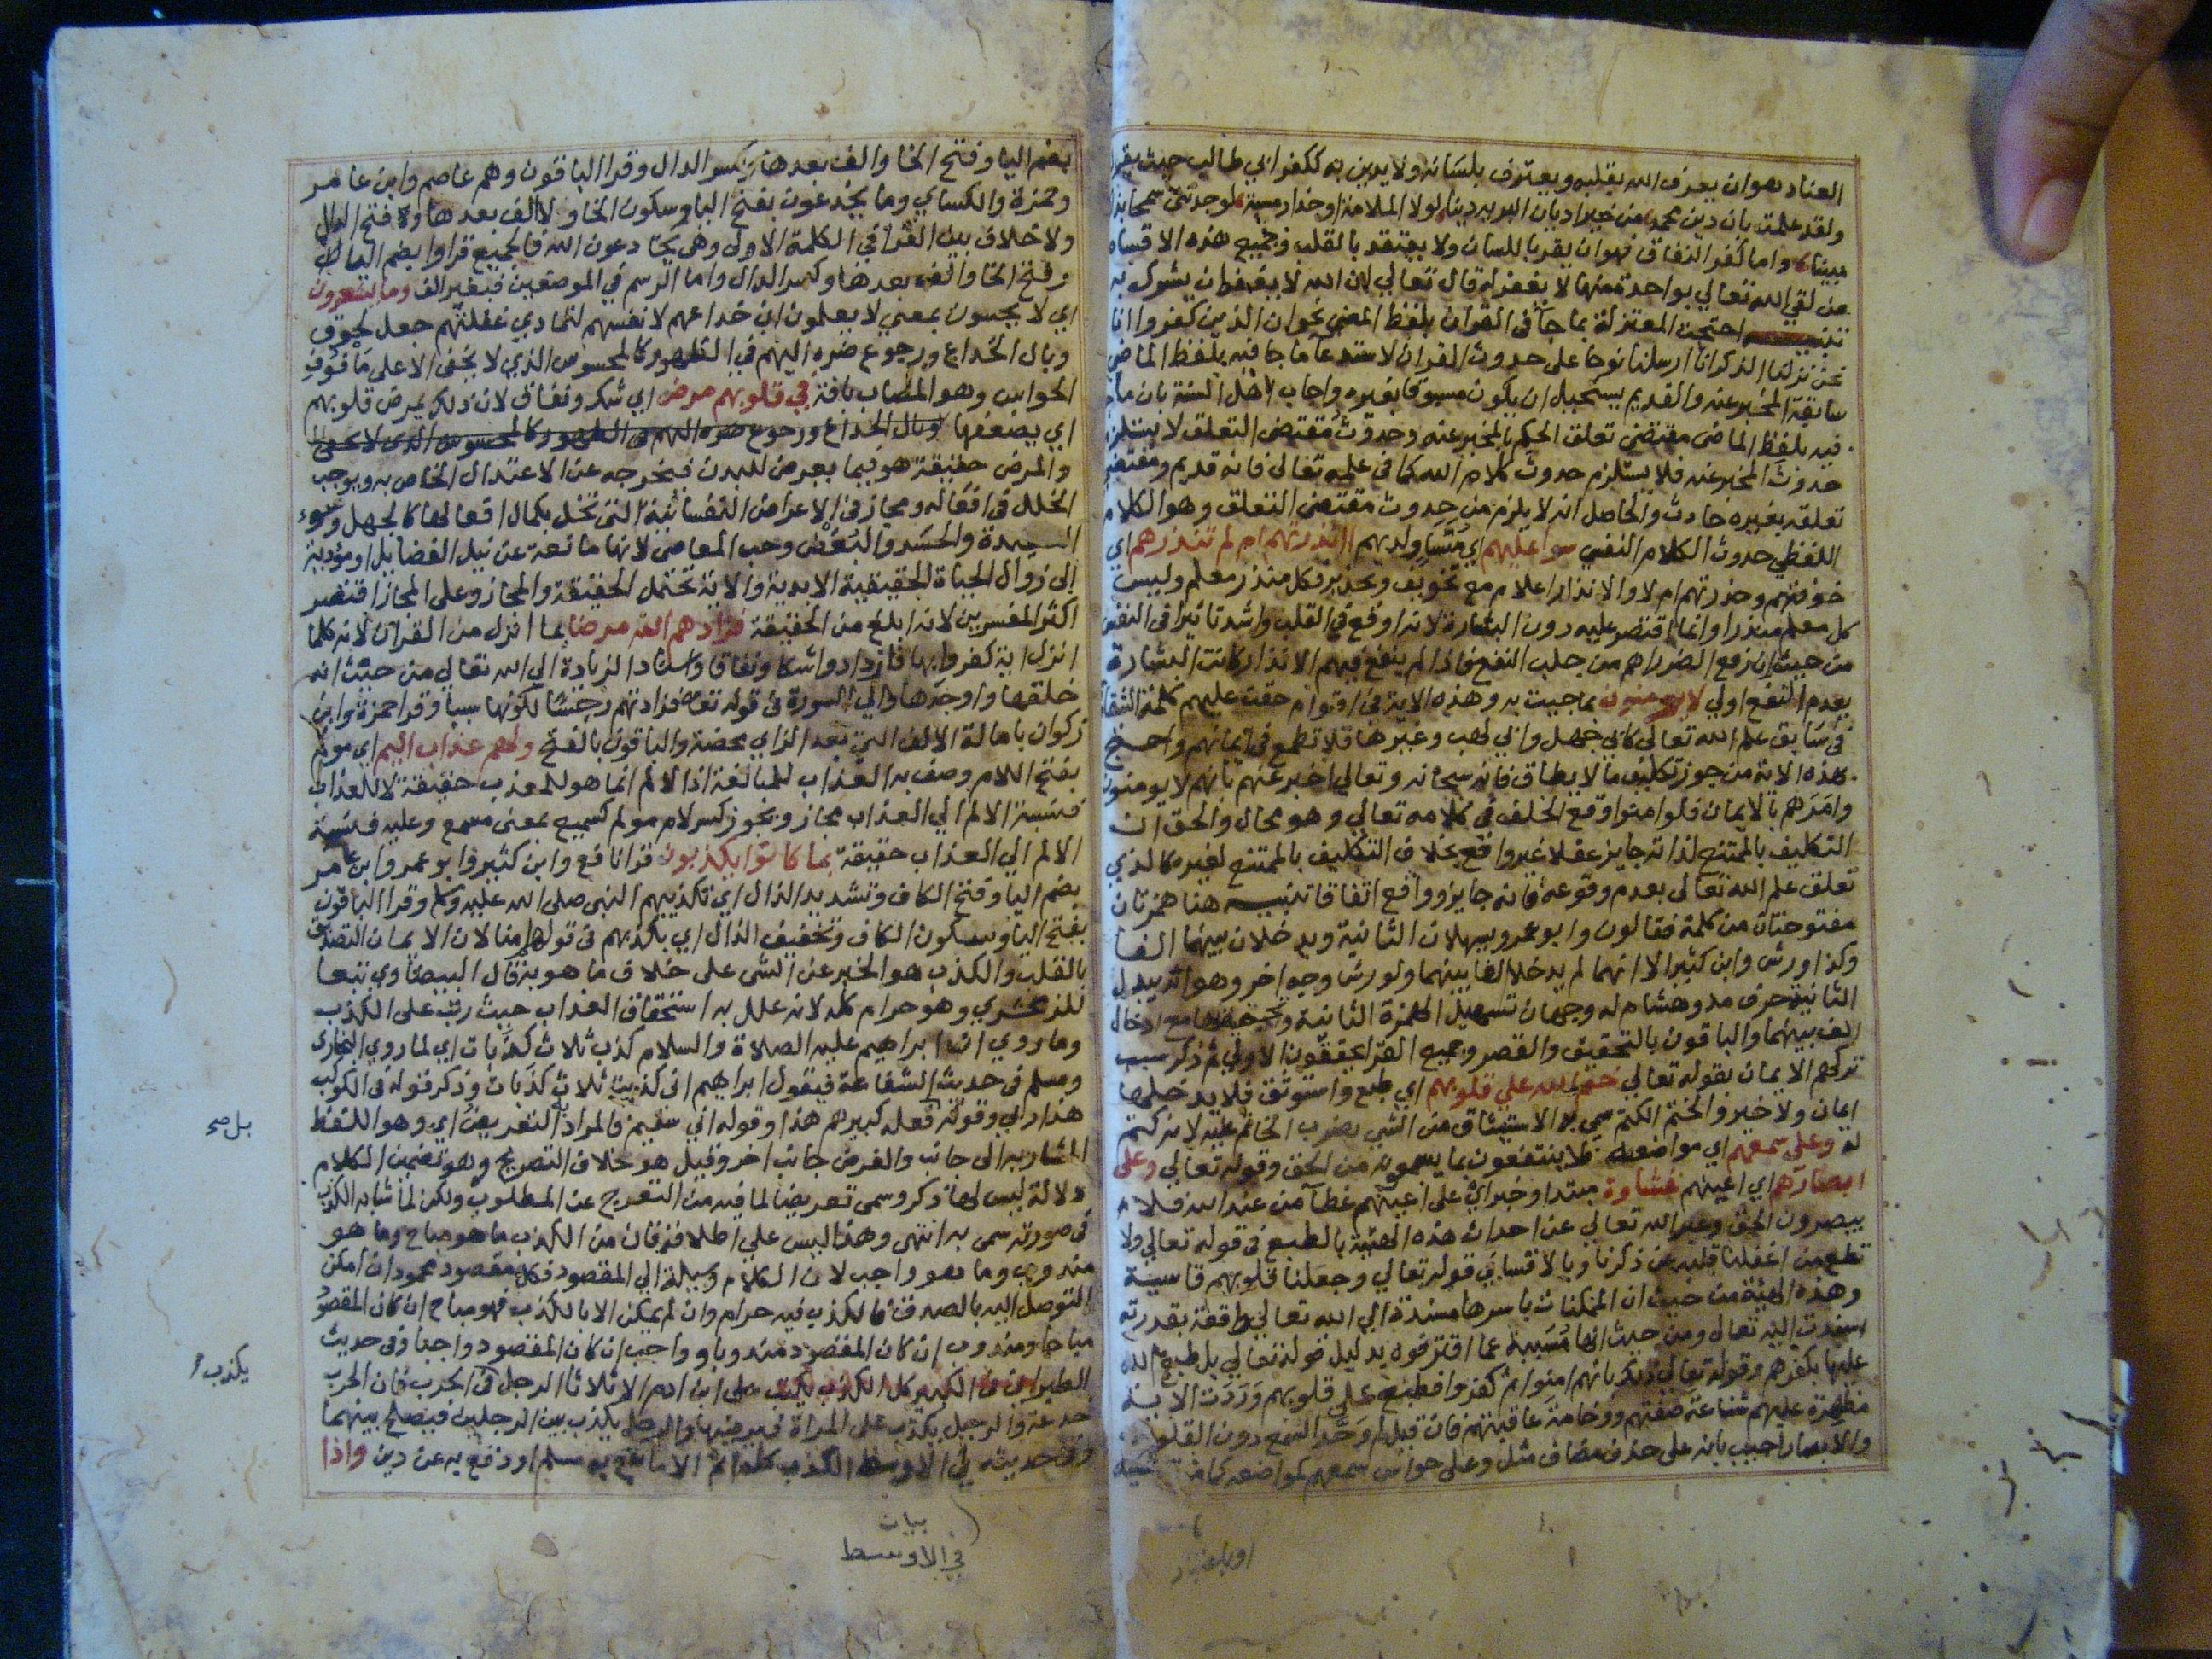 العناد هو ان يعرف الله بقلبه ويعترف بلسانه ولا يدين به ككفر ابي طالب حيث يقول
ولقد علمت بان دين محمد من خير اديان البرية دينا لولا الملامة او حذار مسبة لوجدتني سمحا بذاك
مبينا واما كفر النفاق فهو ان يقر باللسان ولا يعتقد بالقلب وجميع هذه الاقسام
من لقي الله تعالى بواحدة منها لا يغفر له قال تعالى ان الله لا يغفر ان يشرك به
تنبيه احتجت المعتزلة بما جا في القران بلفظ المضي نحو ان الذين كفروا انا
نحن نزلنا الذكر انا ارسلنا نوحا على حدوث القران لاستدعا ما جا فيه بلفظ الماضي
سابقة المخبر عنه والقديم يستحيل ان يكون مسبوقا بغيره واجاب اهل السنة بان ما جا
فيه بلفظ الماضي مقتضى تعلق الحكم بالمخبر عنه وحدوث مقتضى التعلق لا يستلزم
حدوث المخبر عنه فلا يستلزم حدوث كلام الله كما في علمه تعالى فانه قديم ومقتضى
تعلقه بغيره حادث والحاصل انه لا يلزم من حدوث مقتضى التعلق وهو الكلام
اللفظي حدوث الكلام النفسي سوا عليهم اي متساو لديهم اانذرتهم ام لم تنذرهم اي
خوفتهم وحذرتهم ام لا والانذار اعلام مع تخويف وتحذير فكل منذر معلم وليس
كل معلم منذرا وانما اقتصر عليه دون البشارة لانه اوقع في القلب واشد تاثيرا في النفس
من حيث ان دفع الضر اهم من جلب النفع فاذا لم ينفع فيهم الانذار كانت البشارة
بعدم النفع اولى لا يومنون بما جيت به وهذه الاية في اقوام حقت عليهم كلمة الشقا
في سابق علم الله تعالى كابي جهل وابي لهب وغيرهما فلا تطمع في ايمانهم واحتج
بهذه الاية من جوز تكليف ما لا يطاق فانه سبحانه وتعالى اخبر عنهم بانهم لا يومنون
وامرهم بالايمان فلو امنوا وقع الخلف في كلامه تعالى وهو محال والحق ان
التكليف بالممتنع لذاته جايز عقلا غير واقع بخلاف التكليف بالممتنع لغيره كالذي
تعلق علم الله تعالى بعدم وقوعه فانه جايز وواقع اتفاقا تنبيه هنا همزتان
مفتوحتان من كلمة فقالون وابو عمرو يسهلان الثانية ويدخلان بينهما الفا
وكذا ورش وابن كثير الا انهما لم يدخلا الفا بينهما ولورش وجه اخر وهو انه يبدل
الثانية حرف مد وهشام له وجهان تسهيل الهمزة الثانية وتحقيقها مع ادخال
الف بينهما والباقون بالتحقيق والقصر وجميع القرا يحققون الاولى ثم ذكر سبب
تركهم الايمان بقوله تعالى ختم الله على قلوبهم اي طبع واستوثق فلا يدخلها
ايمان ولا خير والختم الكتم سمي به الاستيثاق من الشي بضرب الخاتم عليه لانه كتم
له وعلى سمعهم اي مواضعه فلا ينتفعون بما يسمعونه من الحق وقوله تعالى وعلى
ابصارهم اي اعينهم غشاوة مبتدا وخبر اي على اعينهم غطا من عند الله فلا
يبصرون الحق وعبر الله تعالى عن احداث هذه الهيئة بالطبع في قوله تعالى ولا
تطع من اغفلنا قلبه عن ذكرنا وبالاقسا في قوله تعالى وجعلنا قلوبهم قاسية
وهذه الهيئة من حيث ان الممكنات باسرها مسندة الى الله تعالى واقعة بقدرته
اسندت اليه تعالى ومن حيث انها مسببة عما اقترفوه بدليل قوله تعالى بل طبع الله
عليها بكفرهم وقوله تعالى ذلك بانهم امنوا ثم كفروا فطبع على قلوبهم وردت الاية
مظهرة عليهم شناعة صفتهم ووخامة عاقبتهم فان قيل لم وحد السمع دون القلوب
والابصار اجيب بانه على حذف مضاف مثل وعلى حواس سمعهم كمواضعه
بضم اليا وفتح الخا والف بعدها وكسر الدال وقرا الباقون وهم عاصم وابن عامر
وحمزة والكساي وما يخدعون بفتح اليا وسكون الخا ولا الف بعدها وفتح الدال
ولا خلاف بين القرا في الكلمة الاولى وهي يخادعون الله فالجميع قراوا بضم اليا
وفتح الخا والف بعدها وكسر الدال واما الرسم في الموضعين فبغير الف وما يشعرون
اي لا يحسون بمعنى لا يعلمون ان خداعهم لانفسهم لتمادي غفلتهم جعل لحوق
وبال الخداع ورجوع ضره اليهم في الظهور كالمحسوس الذي لا يخفى الا على ماوف
الحواس وهو المصاب بافة في قلوبهم مرض اي شك ونفاق لان ذلك يمرض قلوبهم
اي يضعفها وبال الخداع ورجوع ضره اليهم في الظهور كالمحسوس الذي لا يخفى الا
والمرض حقيقة هو فيما يعرض للبدن فيخرجه عن الاعتدال الخاص به ويوجب
الخلل في افعاله ومجاز في الاعراض النفسانية التي تخل بكمال افعالها كالجهل وسوء
العقيدة والحسد والبغض وحب المعاصي لانها مانعة عن نيل الفضايل او مؤدية
الى زوال الحياة الحقيقية الابدية والاية تحتمل الحقيقة والمجاز وعلى المجاز اقتصر
اكثر المفسرين لانه ابلغ من الحقيقة فزادهم الله مرضا بما انزل من القران لانه كلما
انزل اية كفروا بها فازدادوا شكا ونفاقا واسناد الزيادة الى الله تعالى من حيث انه
خلقها واوجدها والى السورة في قوله تعالى فزادتهم رجسا لكونها سببا وقرا حمزة وابن
ذكوان بامالة الالف التي بعد الزاي محضة والباقون بالفتح ولهم عذاب اليم اي مولم
بفتح اللام وصف به العذاب للمبالغة اذ الالم انما هو للمعذب حقيقة لا للعذاب
فنسبة الالم الى العذاب مجاز ويجوز كسر لام مولم كسميع بمعنى مسمع وعليه فنسبة
الالم الى العذاب حقيقة بما كانوا يكذبون قرا نافع وابن كثير وابو عمرو وابن عامر
بضم اليا وفتح الكاف وتشديد الذال اي تكذيبهم النبي صلى الله عليه وسلم وقرا الباقون
بفتح اليا وسكون الكاف وتخفيف الذال اي بكذبهم في قولهم امنا لان الايمان التصديق
بالقلب والكذب هو الخبر عن الشي على خلاف ما هو به قال البيضاوي تبعا
للزمخشري وهو حرام كله لانه علل به استحقاق العذاب حيث رتب على الكذب
وما روي ان ابراهيم عليه الصلاة والسلام كذب ثلاث كذبات اي لما روي البخاري
ومسلم في حديث الشفاعة فيقول ابراهيم اني كذبت ثلاث كذبات وذكر قوله في الكوكب
هذا ربي وقوله فعله كبيرهم هذا وقوله اني سقيم فالمراد التعريض اي وهو اللفظ
المشار به الى جانب والغرض جانب اخر وقيل هو خلاف التصريح وهو تضمين الكلام
دلالة ليس لها ذكر وسمى تعريضا لما فيه من التعريج عن المطلوب ولكن لما شابه الكذب
في صورته سمى به انتهى وهذا ليس على اطلاقه فان من الكذب ما هو مباح وما هو
مندوب وما هو واجب لان الكلام وسيلة الى المقصود فكل مقصود محمود ان امكن
التوصل اليه بالصدق فالكذب فيه حرام وان لم يمكن الا بالكذب فهو مباح ان كان المقصود
مباحا ومندوب ان كان المقصود مندوبا وواجب ان كان المقصود واجبا وفي حديث
الطبراني في الكبير كل الكذب يكتب على ابن ادم الا ثلاثا الرجل في الحرب فان الحرب
خدعة والرجل يكذب على المراة فيرضيها والرجل يكذب بين الرجلين فيصلح بينهما
وفي حديثه في الاوسط الكذب كله اثم الا ما نفع به مسلم او دفع به عن دين واذا
بل صح
يكذب
بيان
في الاوسط